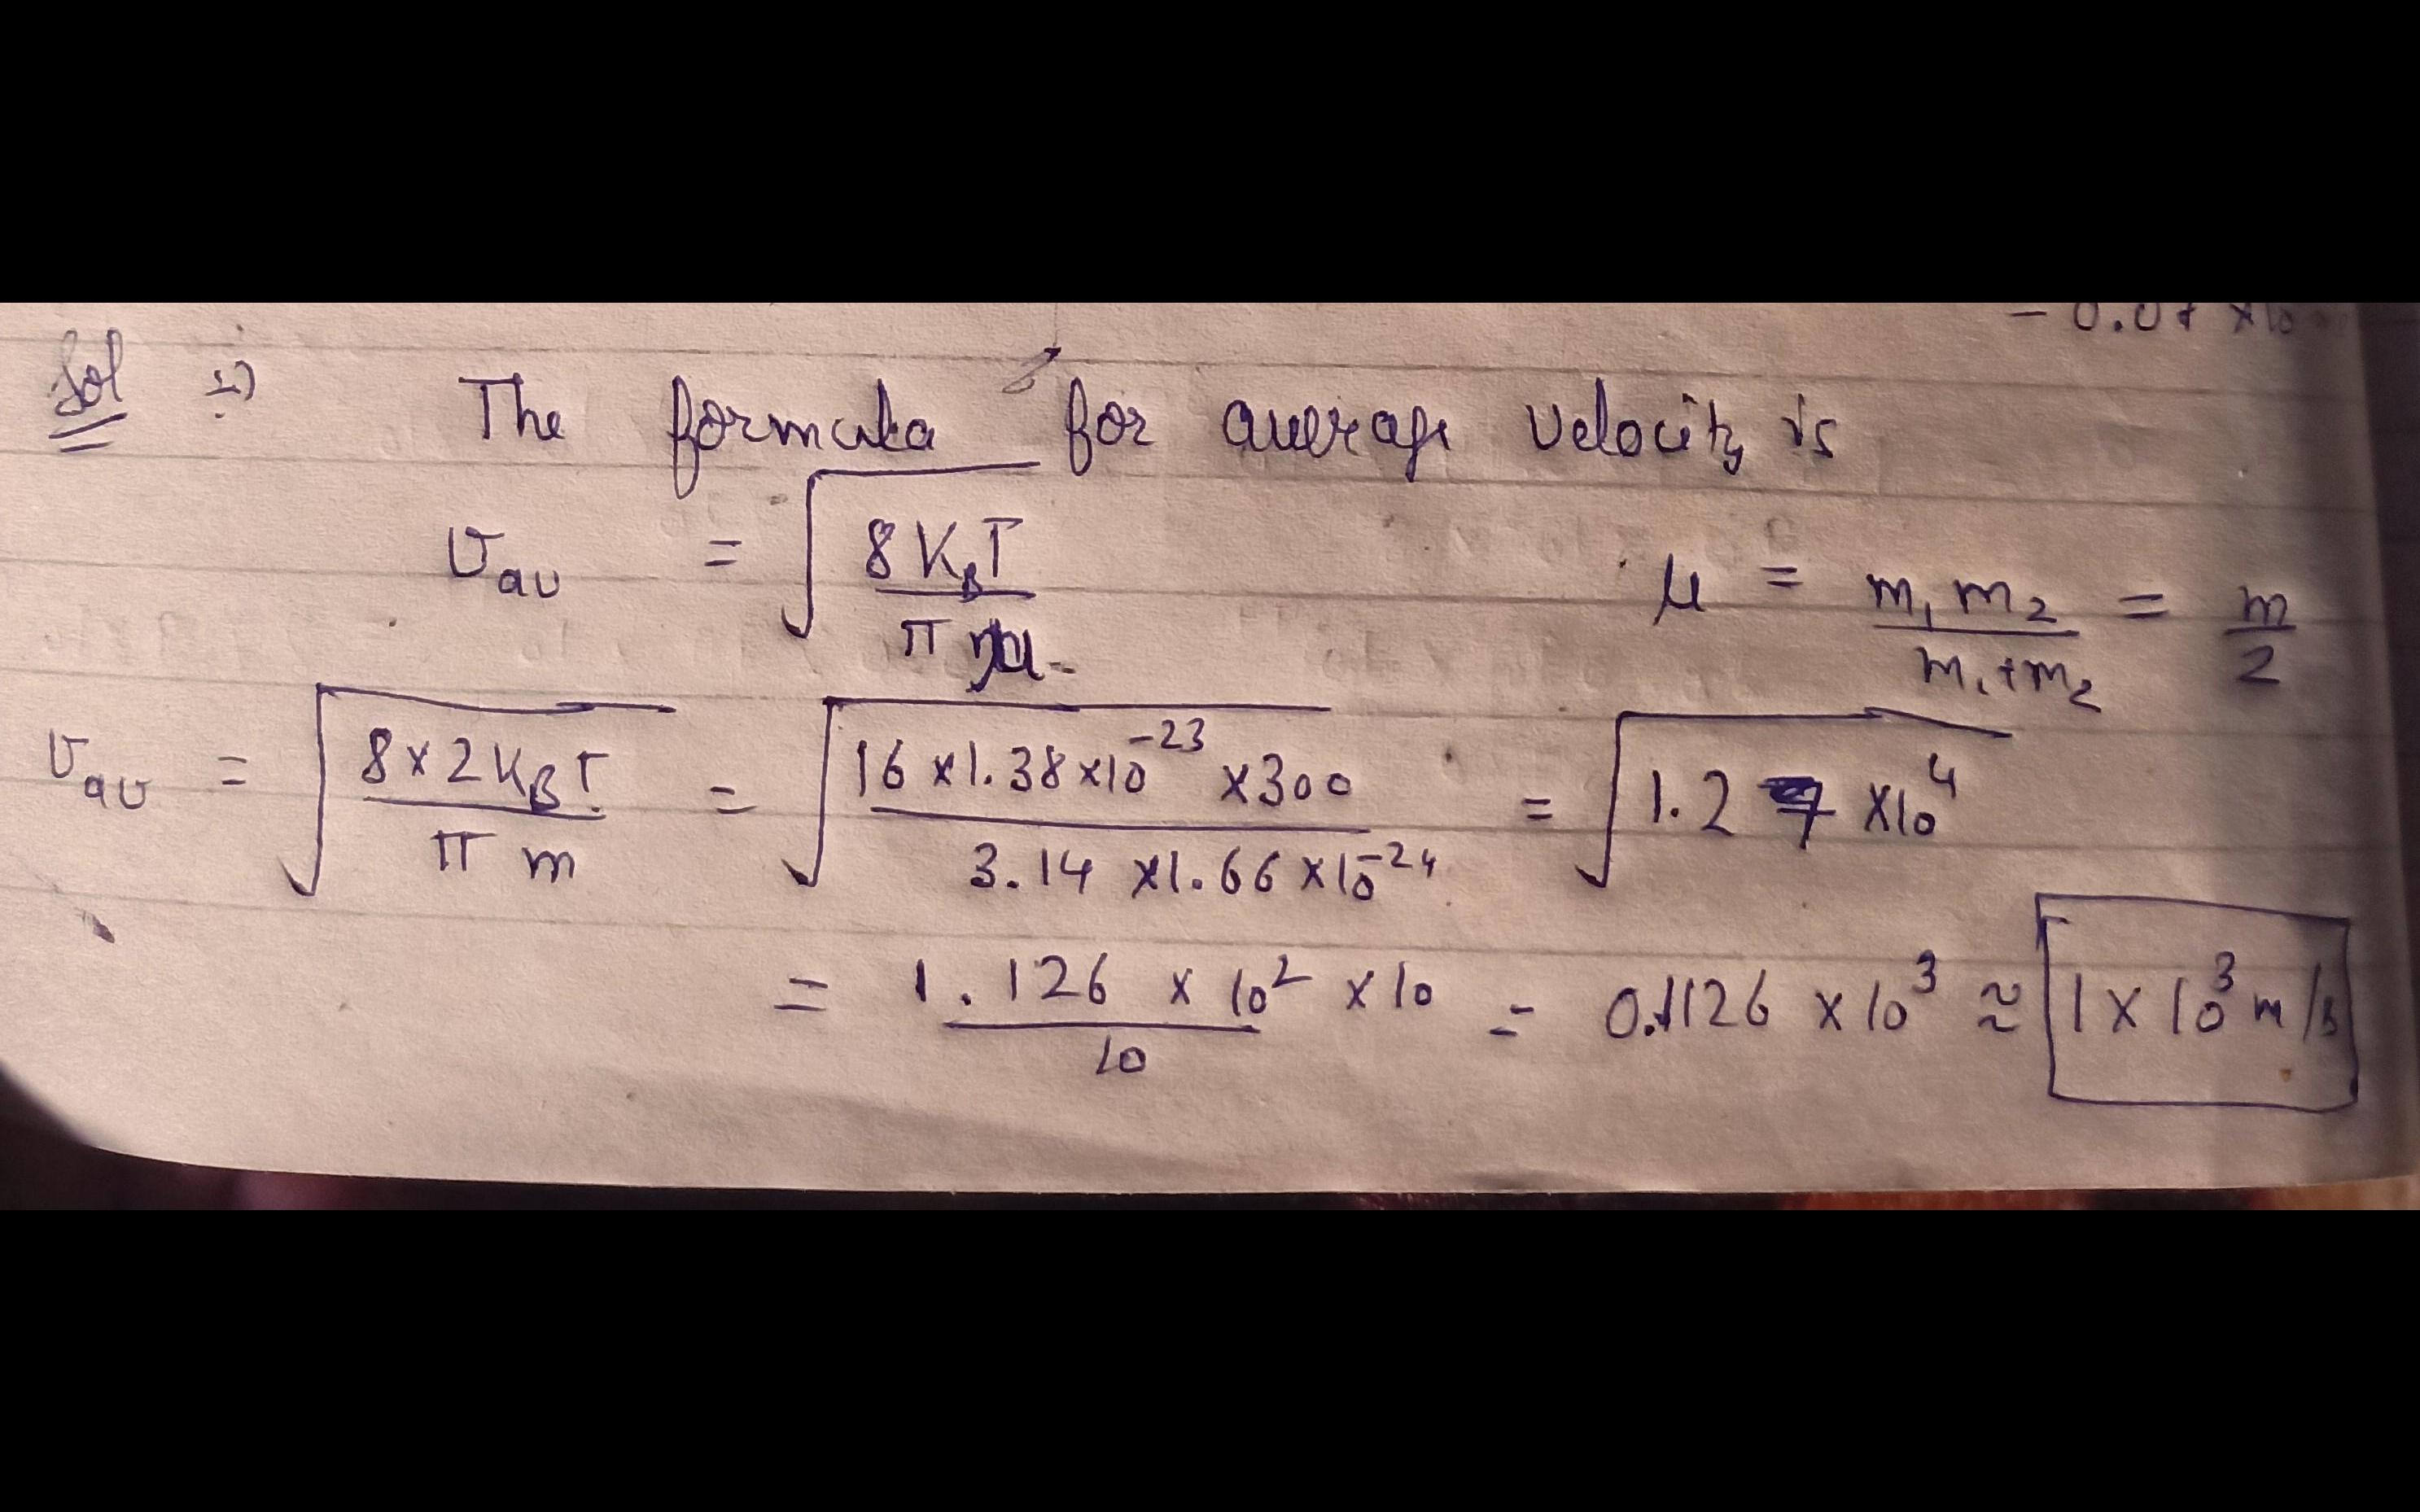 - 0.07 x10
Sol 1) The formula for average velocity is
v_av = √(8 K_B T / π μ) μ = m₁ m₂ / (m₁+m₂) = m / 2
v_av = √(8×2 K_B T / π m) = √(16 ×1.38 ×10⁻²³ ×300 / 3.14 ×1.66 ×10⁻²⁴) = √(1.27 ×10⁴)
= 1.126 × 10² × 10 / 10 = 0.1126 × 10³ ≈ 1 × 10³ m/s